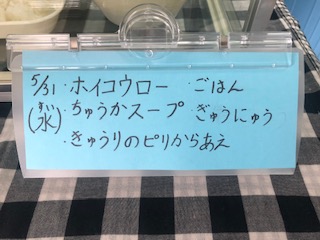 5/31 ・ホイコウロー ・ごはん
(水) ・ちゅうかスープ ぎゅうにゅう
・きゅうりのピリからあえ